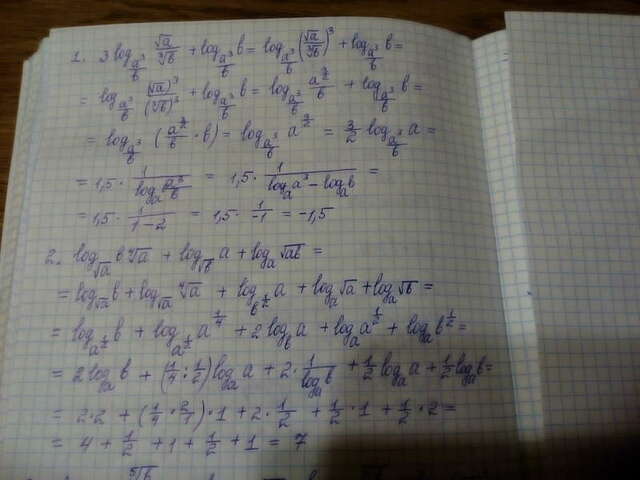 1. 3 log_{a³/b} √a/∛b + log_{a³/b} b = log_{a³/b} (√a/∛b)³ + log_{a³/b} b =
= log_{a³/b} (√a)³/(∛b)³ + log_{a³/b} b = log_{a³/b} a^{3/2}/b + log_{a³/b} b =
= log_{a³/b} (a^{3/2}/b · b) = log_{a³/b} a^{3/2} = 3/2 log_{a³/b} a =
= 1,5 · 1/(log_a a³/b) = 1,5 · 1/(log_a a³ - log_a b) =
= 1,5 · 1/(1-2) = 1,5 · 1/-1 = -1,5
2. log_{√a} b ∜a + log_{√b} a + log_a √ab =
= log_{√a} b + log_{√a} ∜a + log_{b^{1/2}} a + log_a √a + log_a √b =
= log_{a^{1/2}} b + log_{a^{1/2}} a^{1/4} + 2 log_b a + log_a a^{1/2} + log_a b^{1/2} =
= 2 log_a b + (1/4 : 1/2) log_a a + 2 · 1/(log_a b) + 1/2 log_a a + 1/2 log_a b =
= 2·2 + (1/4 · 2/1) · 1 + 2 · 1/2 + 1/2 · 1 + 1/2 · 2 =
= 4 + 1/2 + 1 + 1/2 + 1 = 7